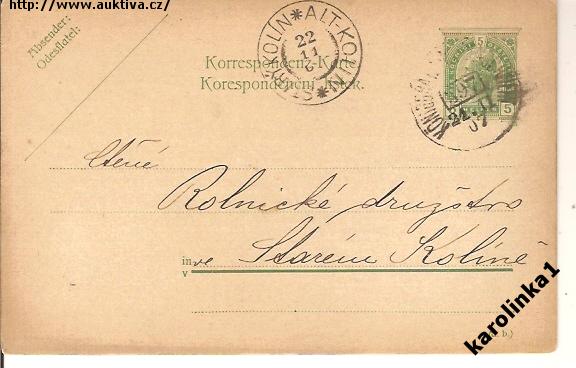 http://www.auktiva.cz/
Absender:
Odesílatel:
STARÝ KOLÍN * ALT-KOLIN *
22
11
Korrespondenz-Karte.
Korespondenční lístek.
5
5
21 11
07
Ctěné
Rolnické družstvo
in ve Starém Kolíně
v
karolinka1